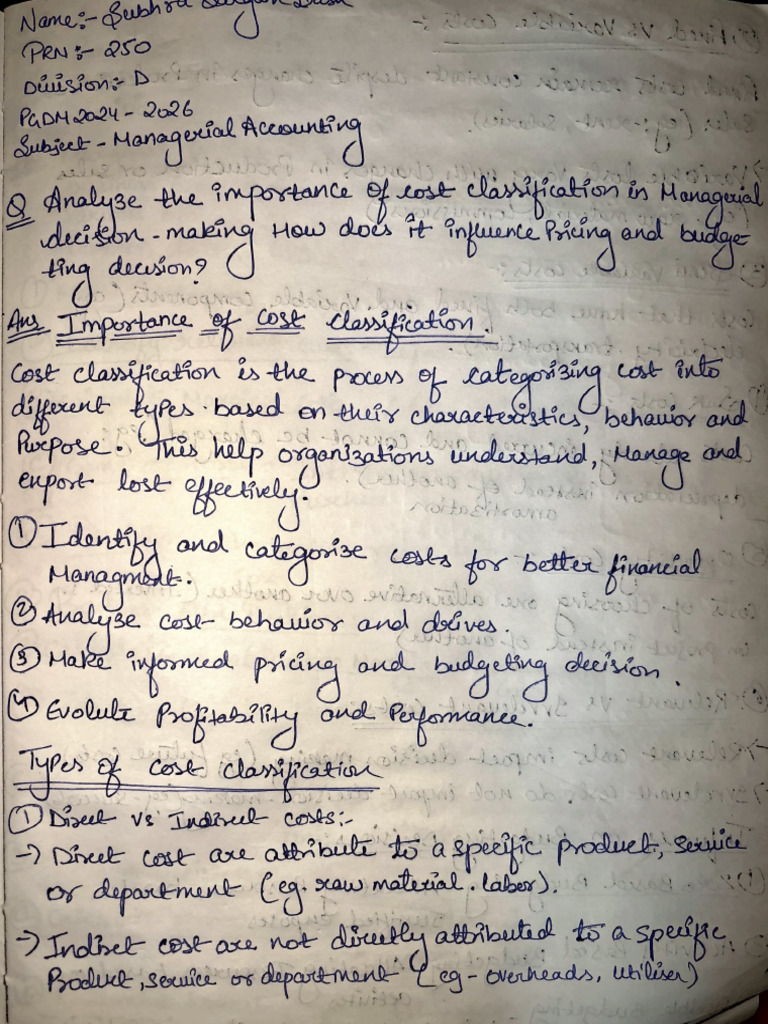 Name:- Subhra
PRN:- 250
Division:- D
PGDM 2024 - 2026
Subject - Managerial Accounting
Q Analyze the importance of cost classification in Managerial
decision-making How does it influence Pricing and budge-
ting decision?
Ans Importance of cost classification.
Cost classification is the process of categorizing cost into
different types based on their characteristics, behavior and
Purpose. This help organizations understand, Manage and
lost effectively.
① Identify and categorize costs for better financial
Managment.
② Analyse cost behavior and drives.
③ Make informed pricing and budgeting decision.
④ Evolute Profitability and Performance.
Types of cost classification
① Direct vs Indirect costs:-
→ Direct cost are attribute to a specific product, service
or department (eg. raw material. labor).
→ Indiret cost are not directly attributed to a specific
Product, service or department (eg - overheads, )